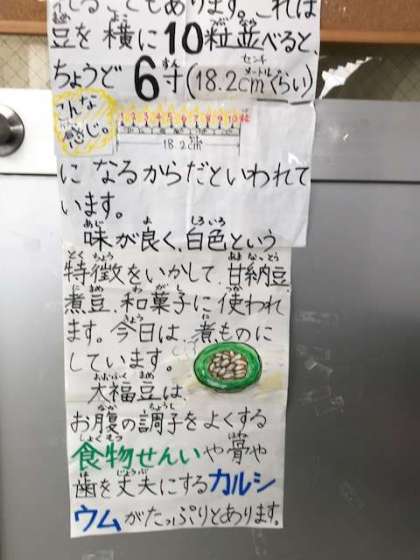 てることもあります。これは
豆を横に10粒並べると、
ちょうど6寸(18.2cmくらい)
こんな感じ。
1 2 3 4 5 6 7 8 9 10粒
18.2cm
になるからだといわれて
います。
味が良く、白色という
特徴をいかして、甘納豆、
煮豆、和菓子に使われ
ます。今日は、煮ものに
しています。
大福豆は、
お腹の調子をよくする
食物せんいや骨や
歯を丈夫にするカルシ
ウムがたっぷりとあります。